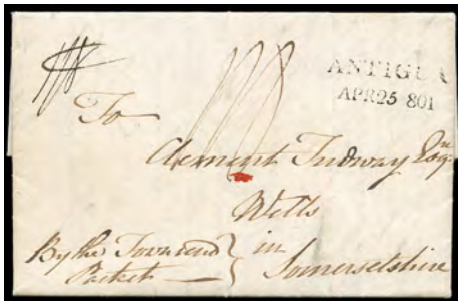 ANTIGUA
APR25 801
To
Clement Tudway Esqr.
Wells
in
Somersetshire
By the Townsend
Packet